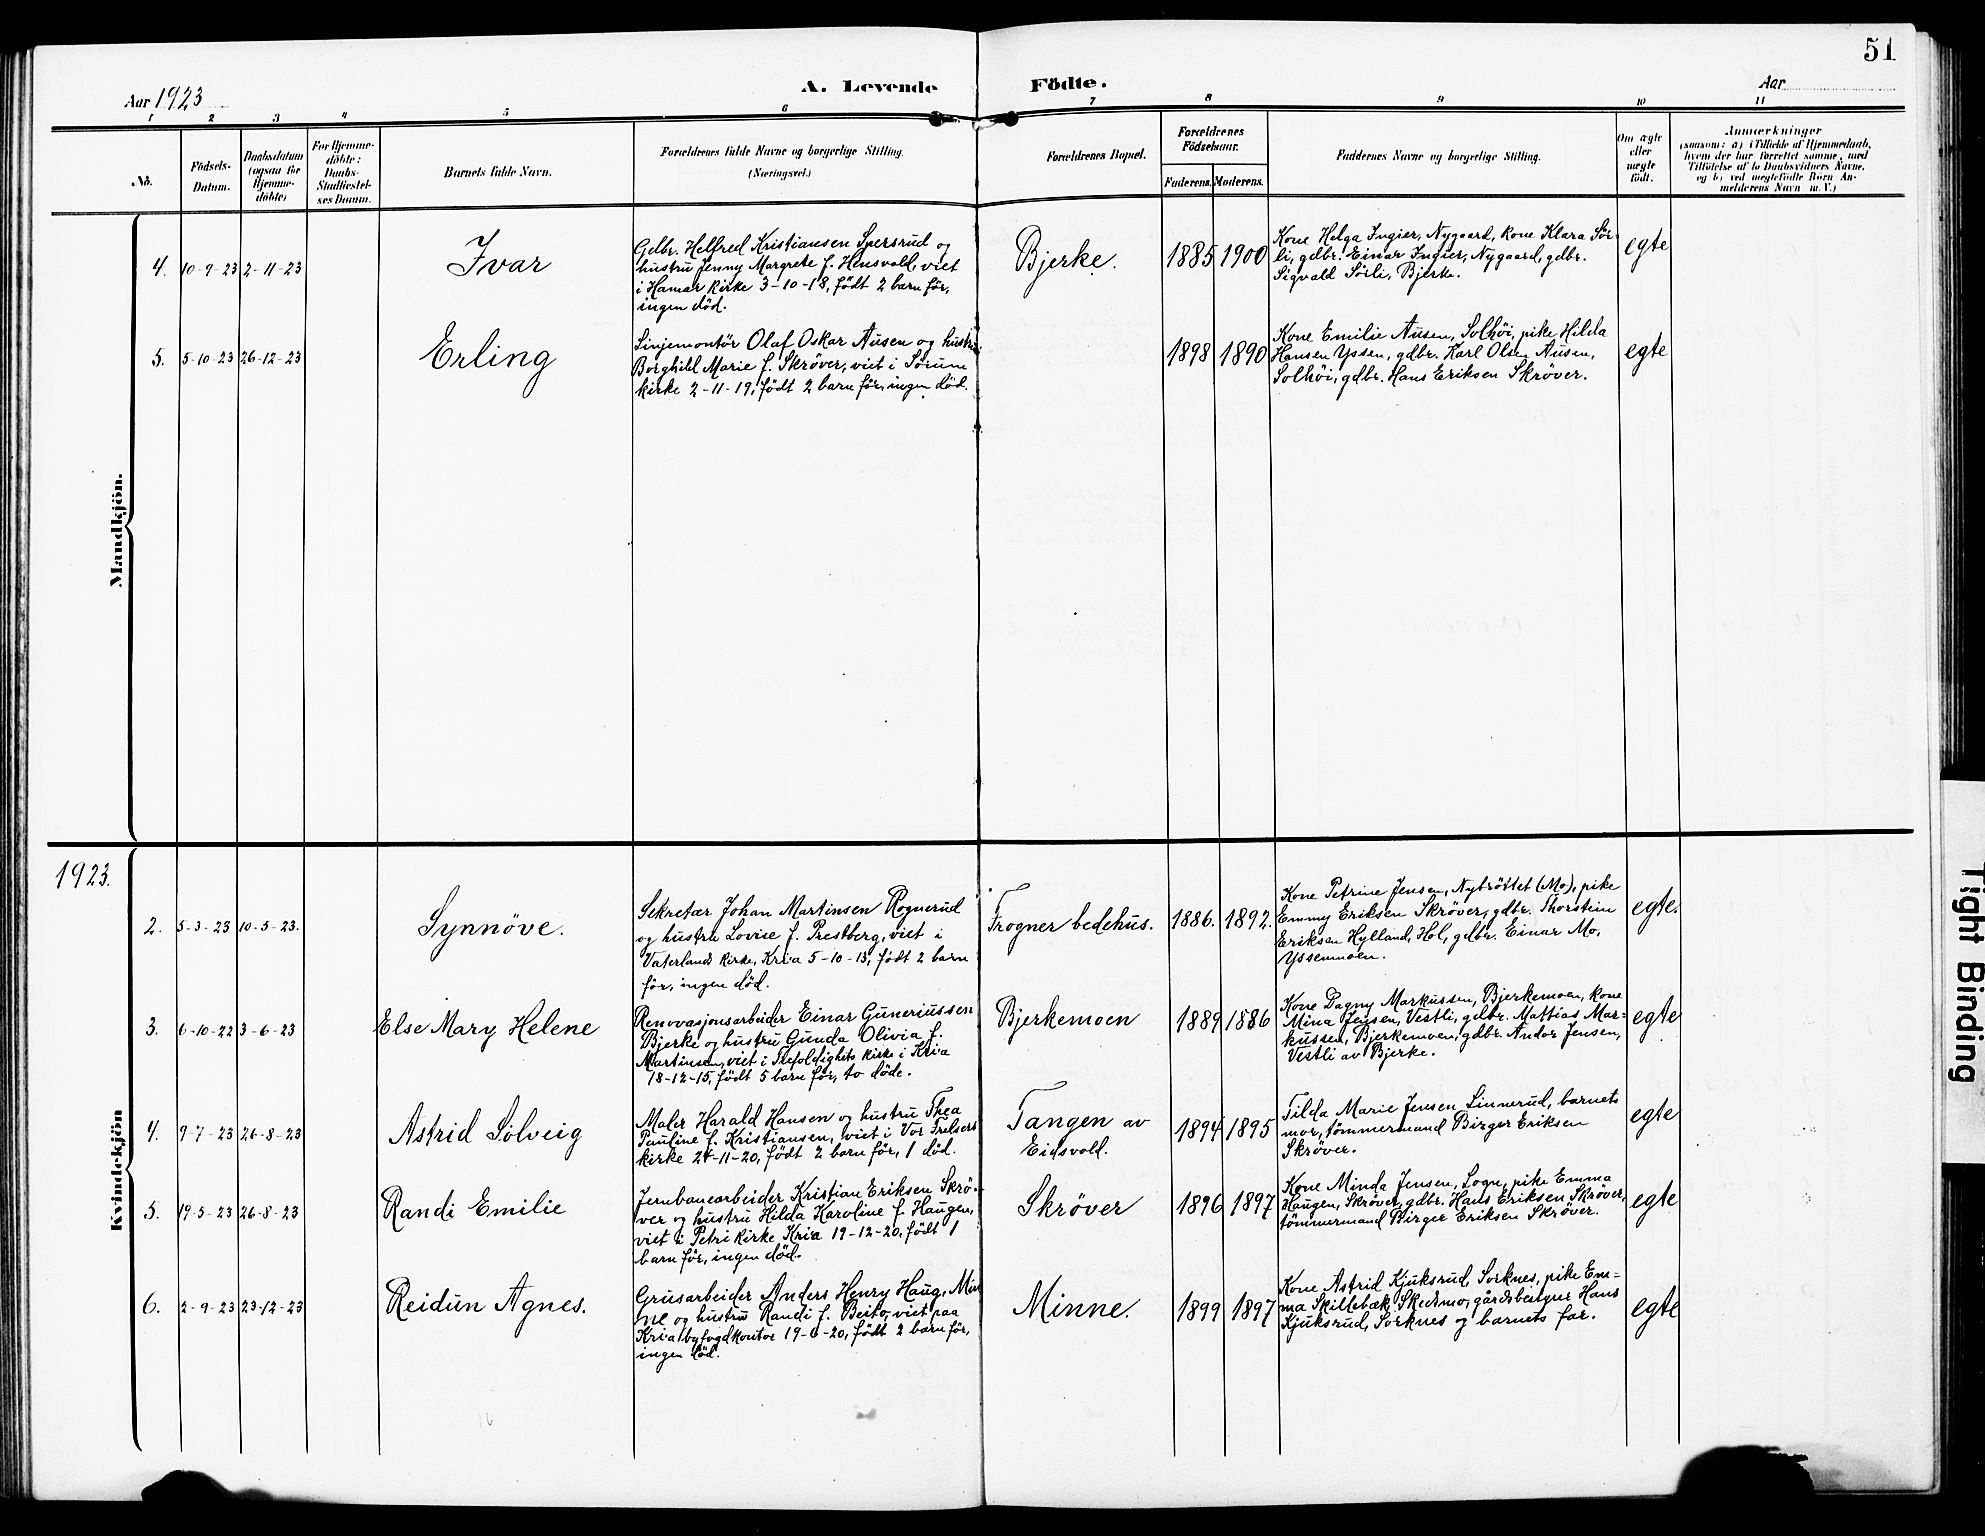 51
A. Levende Födte.
Aar 1923
Aar
1 2 3 4 5 6 7 8 9 10 11
No.
Födsels-
Datum.
Daabsdatum
(ogsaa for
Hjemme-
döbte)
For Hjemme-
döbte:
Daabs-
Stadfæstel-
ses Datum.
Barnets fulde Navn.
Forældrenes fulde Navne og borgerlige Stilling.
(Næringsvei.)
Forældrenes Bopæl.
Forældrenes
Födselsaar.
Faderens.
Moderens.
Faddernes Navne og borgerlige Stilling.
Om ægte
eller
uægte
födt.
Anmærkninger
(saasom: a) i Tilfælde af Hjemmedaab,
hvem der har forrettet samme, med
Tilföielse af to Daabsvidners Navne,
og b) ved uegtefödte Börn An-
melderens Navn m. V.)
Mandkjön.
4. 10-9-23 2-11-23
Ivar
Gdbr. Helfred Kristiansen Spersrud og
hustru Jenny Margrete f. Hensvold, viet
i Hamar kirke 3-10-18, født 2 barn før,
ingen död.
Bjerke.
1885 1900
Kone Helga Ingier, Nygaard, kone Klara Sör-
li, gdbr. Einar Ingier, Nygaard, gdbr.
Sigvald Sörli, Bjerke.
egte
5. 5-10-23 26-12-23
Erling
Linjemontör Olaf Oskar Ausen og hustru
Borghild Marie f. Skröver, viet i Sörum
kirke 2-11-19, född 2 barn för, ingen död.
1898 1890
Kone Emilie Ausen, Solhöi, pike Hilda
Hansen Yssen, gdbr. Karl Olsen Ausen,
Solhöi, gdbr. Hans Eriksen Skröver.
egte
1923.
Kvindekjön
2. 5-3-23 10-5-23.
Synnöve.
Sekretær Johan Martinsen Rognerud
og hustru Lovise f. Prestberg, viet i
Vaterlands kirke, Kria 5-10-13, født 2 barn
för, ingen död.
Frogner bedehus.
1886. 1892.
Kone Petrine Jensen, Nybröttet (Mo), pike
Emmy Eriksen Skröver, gdbr. Thorstein
Eriksen Hylland, Hol, gdbr. Einar Mo,
Yssenmoen.
egte.
3. 6-10-22 3-6-23
Else Mary Helene
Renovasjonsarbeider Einar Guneriussen
Bjerke og hustru Gunda Olivia f.
Martinsen, viet i Trefoldighets kirke i Kria
18-12-15, født 5 barn før, to döde.
Bjerkemoen
1889 1886
Kone Dagny Markussen, Bjerkemoen, kone
Mina Jensen, Vestli, gdbr. Mattias Mar-
kussen, Bjerkemoen, gdbr. Andor Jensen,
Vestli av Bjerke.
egte
4. 9-7-23 26-8-23
Astrid Solveig
Maler Harald Hansen og hustru Thea
Pauline f. Kristiansen, viet i Vor Frelsers
kirke 24-11-20, født 2 barn för, 1 död.
Tangen av
Eidsvold.
1894 1895
Tilda Marie Jensen Linnerud, barnets
mor, tömmermand Birger Eriksen
Skröver.
egte
5. 19-5-23 26-8-23
Randi Emilie
Jernbanearbeider Kristian Eriksen Skrö-
ver og hustru Hilda Karoline f. Haugen,
viet i Petri kirke Kria 19-12-20, födt 1
barn för, ingen död.
Skröver
1896 1897
Kone Minda Jensen, Logn, pike Emma
Haugen, Skröver, gdbr. Hans Eriksen Skröver,
tömmermand Birger Eriksen Skröver.
egte
6. 2-9-23 23-12-23
Reidun Agnes.
Grusarbeider Anders Henry Haug, Min
ne og hustru Randi f. Beito, viet paa
Kria byfogdkontor 19-6-20, födt 2 barn för,
ingen död.
Minne.
1899 1897
Kone Astrid Kjuksrud, Sorknes, pike Em=
ma Skillebæk, Skedsmo, gårdbruger Hans
Kjuksrud, Sorknes og barnets far.
egte
Tight Binding